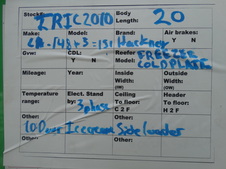 Stock#: IRIC2010 Body Length: 20
Make: Model: Brand: Air brakes:
Hackney Y N
Gvw: CDL: Reefer Model: FREEZER
Y N COLDPLATE
Mileage: Year: Inside Width: Outside Width:
(IW) (OW)
Temperature range: Elect. Stand by: 3 phase Ceiling To floor: Header To floor:
C 2 F H 2 F
Other: 10 Door Icecream Side loader
Other:
Other: